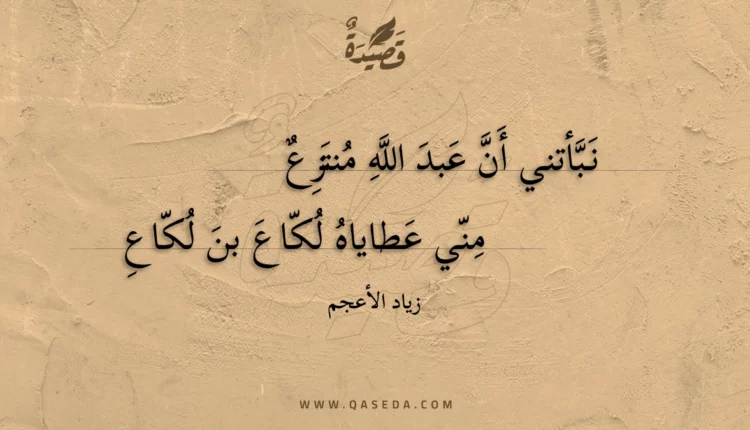 قَصِيْدَةٌ
نَبَّأتني أَنَّ عَبدَ اللَّهِ مُنتَزِعٌ
مِنّي عَطاياهُ لُكّاعَ بنَ لُكّاعِ
زياد الأعجم
WWW.QASEDA.COM